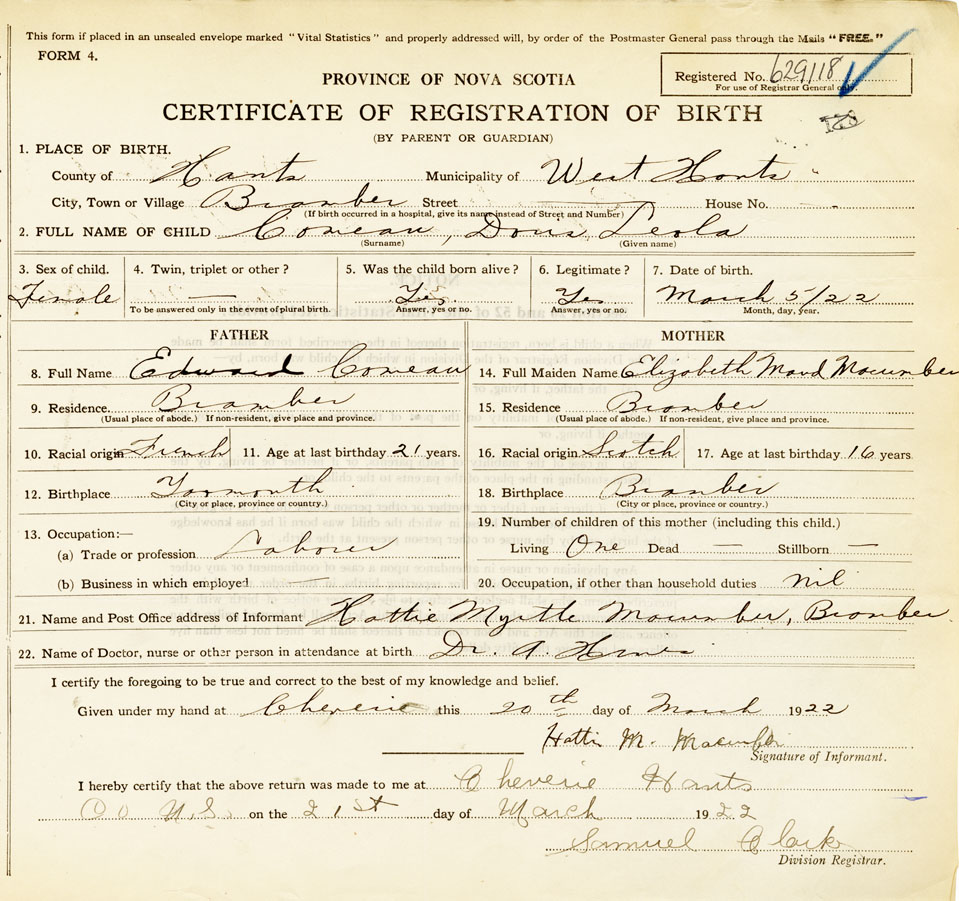 This form if placed in an unsealed envelope marked "Vital Statistics" and properly addressed will, by order of the Postmaster General pass through the Mails "FREE."
FORM 4.
Registered No. 629118
For use of Registrar General only.
PROVINCE OF NOVA SCOTIA
CERTIFICATE OF REGISTRATION OF BIRTH
(BY PARENT OR GUARDIAN)
1. PLACE OF BIRTH.
County of Hants Municipality of West Hants
City, Town or Village Bramber Street House No.
(If birth occurred in a hospital, give its name instead of Street and Number)
2. FULL NAME OF CHILD Comeau, Doris Leola
(Surname) (Given name)
3. Sex of child. 4. Twin, triplet or other? 5. Was the child born alive? 6. Legitimate? 7. Date of birth.
Female — Yes Yes March 5/22
To be answered only in the event of plural birth. Answer, yes or no. Answer, yes or no. Month, day, year.
FATHER MOTHER
8. Full Name Edward Comeau 14. Full Maiden Name Elizabeth Maud Macumber
9. Residence. Bramber 15. Residence Bramber
(Usual place of abode.) If non-resident, give place and province. (Usual place of abode.) If non-resident, give place and province.
10. Racial origin French 11. Age at last birthday 21 years. 16. Racial origin Scotch 17. Age at last birthday 16 years
12. Birthplace Yarmouth 18. Birthplace Bramber
(City or place, province or country.) (City or place, province or country.)
13. Occupation:— 19. Number of children of this mother (including this child.)
(a) Trade or profession Laborer Living One Dead — Stillborn —
(b) Business in which employed — 20. Occupation, if other than household duties nil
21. Name and Post Office address of Informant Hattie Myrtle Macumber, Bramber
22. Name of Doctor, nurse or other person in attendance at birth Dr. A.
I certify the foregoing to be true and correct to the best of my knowledge and belief.
Given under my hand at Cheverie this 20th day of March 1922
Hattie M. Macumber
Signature of Informant.
I hereby certify that the above return was made to me at Cheverie Hants
Co N.S. on the 21st day of March 1922
Samuel Clark
Division Registrar.